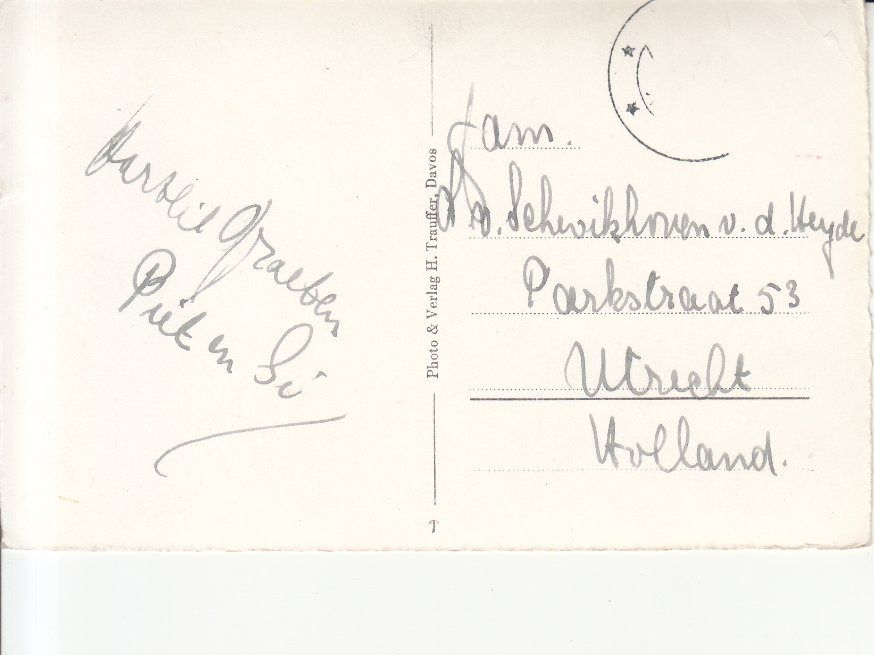 Hartelil Graeten
Piet en Si
Photo & Verlag H. Trauffer, Davos
Fam.
v. Schevikhoven v. d. Heyde
Parkstraat 53
Utrecht
Holland.